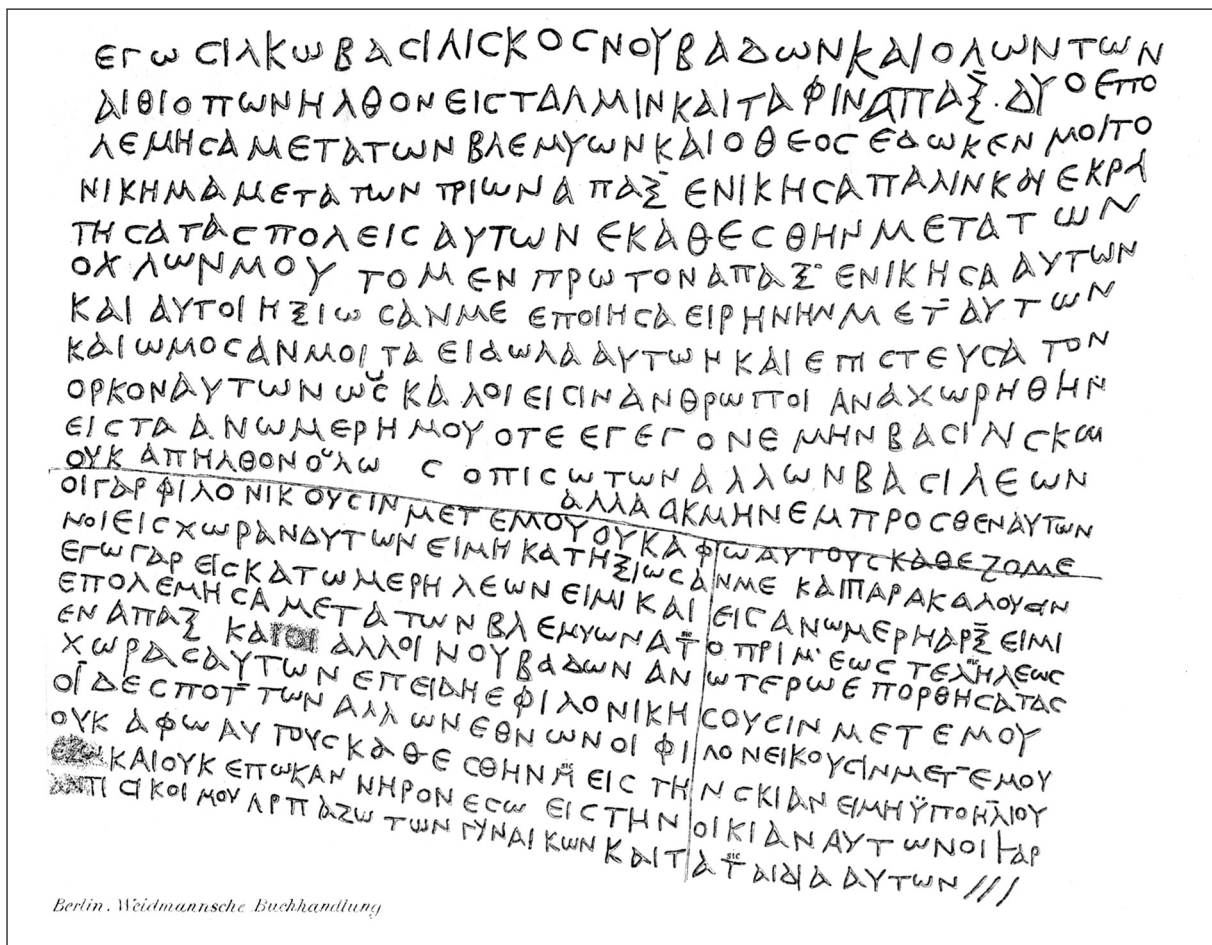 ΕΓω ϹΙΛΚω ΒΑϹΙΛΙϹΚΟϹ ΝΟΥΒΑΔωΝ ΚΑΙ ΟΛωΝ ΤωΝ
ΑΙΘΙΟΠωΝ ΗΛΘΟΝ ΕΙϹ ΤΑΛΜΙΝ ΚΑΙ ΤΑΦΙΝ ΑΠΑΞ· ΔΥΟ ΕΠΟ
ΛΕΜΗϹΑ ΜΕΤΑ ΤωΝ ΒΛΕΜΥωΝ ΚΑΙ Ο ΘΕΟϹ ΕΔωΚΕΝ ΜΟΙ ΤΟ
ΝΙΚΗΜΑ ΜΕΤΑ ΤωΝ ΤΡΙωΝ ΑΠΑΞ ΕΝΙΚΗϹΑ ΠΑΛΙΝ ΚΑΙ ΕΚΡΑ
ΤΗϹΑ ΤΑϹ ΠΟΛΕΙϹ ΑΥΤωΝ ΕΚΑΘΕϹΘΗΝ ΜΕΤΑ ΤωΝ
ΟΧΛωΝ ΜΟΥ ΤΟ ΜΕΝ ΠΡωΤΟΝ ΑΠΑΞ ΕΝΙΚΗϹΑ ΑΥΤωΝ
ΚΑΙ ΑΥΤΟΙ ΗΞΙωϹΑΝ ΜΕ ΕΠΟΙΗϹΑ ΕΙΡΗΝΗΝ ΜΕΤ ΑΥΤωΝ
ΚΑΙ ωΜΟϹΑΝ ΜΟΙ ΤΑ ΕΙΔωΛΑ ΑΥΤωΝ ΚΑΙ ΕΠΙϹΤΕΥϹΑ ΤΟΝ
ΟΡΚΟΝ ΑΥΤωΝ ωϹ ΚΑΛΟΙ ΕΙϹΙΝ ΑΝΘΡωΠΟΙ ΑΝΑΧωΡΗΘΗΝ
ΕΙϹ ΤΑ ΑΝω ΜΕΡΗ ΜΟΥ ΟΤΕ ΕΓΕΓΟΝΕΜΗΝ ΒΑϹΙΛΙϹΚΟϹ
ΟΥΚ ΑΠΗΛΘΟΝ ΟΛωϹ ΟΠΙϹω ΤωΝ ΑΛΛωΝ ΒΑϹΙΛΕωΝ
ΑΛΛΑ ΑΚΜΗΝ ΕΜΠΡΟϹΘΕΝ ΑΥΤωΝ
ΟΙ ΓΑΡ ΦΙΛΟΝΙΚΟΥϹΙΝ ΜΕΤ ΕΜΟΥ ΟΥΚ ΑΦω ΑΥΤΟΥϹ ΚΑΘΕΖΟΜΕ
ΝΟΙ ΕΙϹ ΧωΡΑΝ ΑΥΤωΝ ΕΙΜΗ ΚΑΤΗΞΙωϹΑΝ ΜΕ ΚΑΙ ΠΑΡΑΚΑΛΟΥϹΙΝ
ΕΓω ΓΑΡ ΕΙϹ ΚΑΤω ΜΕΡΗ ΛΕωΝ ΕΙΜΙ ΚΑΙ ΕΙϹ ΑΝω ΜΕΡΗ ΑΡΞ ΕΙΜΙ
ΕΠΟΛΕΜΗϹΑ ΜΕΤΑ ΤωΝ ΒΛΕΜΥωΝ ΑΤΟ ΠΡΙΜ· ΕωϹ ΤΕΛΗΛΕωϹ
ΕΝ ΑΠΑΞ ΚΑΙ ΟΙ ΑΛΛΟΙ ΝΟΥΒΑΔωΝ ΑΝωΤΕΡω ΕΠΟΡΘΗϹΑ ΤΑϹ
ΧωΡΑϹ ΑΥΤωΝ ΕΠΕΙΔΗ ΕΦΙΛΟΝΙΚΗϹΟΥϹΙΝ ΜΕΤ ΕΜΟΥ
ΟΙ ΔΕϹΠΟΤ ΤωΝ ΑΛΛωΝ ΕΘΝωΝ ΟΙ ΦΙΛΟΝΕΙΚΟΥϹΙΝ ΜΕΤ ΕΜΟΥ
ΟΥΚ ΑΦω ΑΥΤΟΥϹ ΚΑΘΕϹΘΗΝΑΙ ΕΙϹ ΤΗΝ ϹΚΙΑΝ ΕΙΜΗ ΫΠΟ ΗΛΙΟΥ
ΕΞω ΚΑΙ ΟΥΚ ΕΠωΚΑΝ ΝΗΡΟΝ ΕϹω ΕΙϹ ΤΗΝ ΟΙΚΙΑΝ ΑΥΤωΝ ΟΙ ΓΑΡ
ΑΝΤΙϹΙΚΟΙ ΜΟΥ ΑΡΠΑΖω ΤωΝ ΓΥΝΑΙΚωΝ ΚΑΙ ΤΑ ΤΑΙΔΙΑ ΑΥΤωΝ ///
Berlin. Weidmannsche Buchhandlung